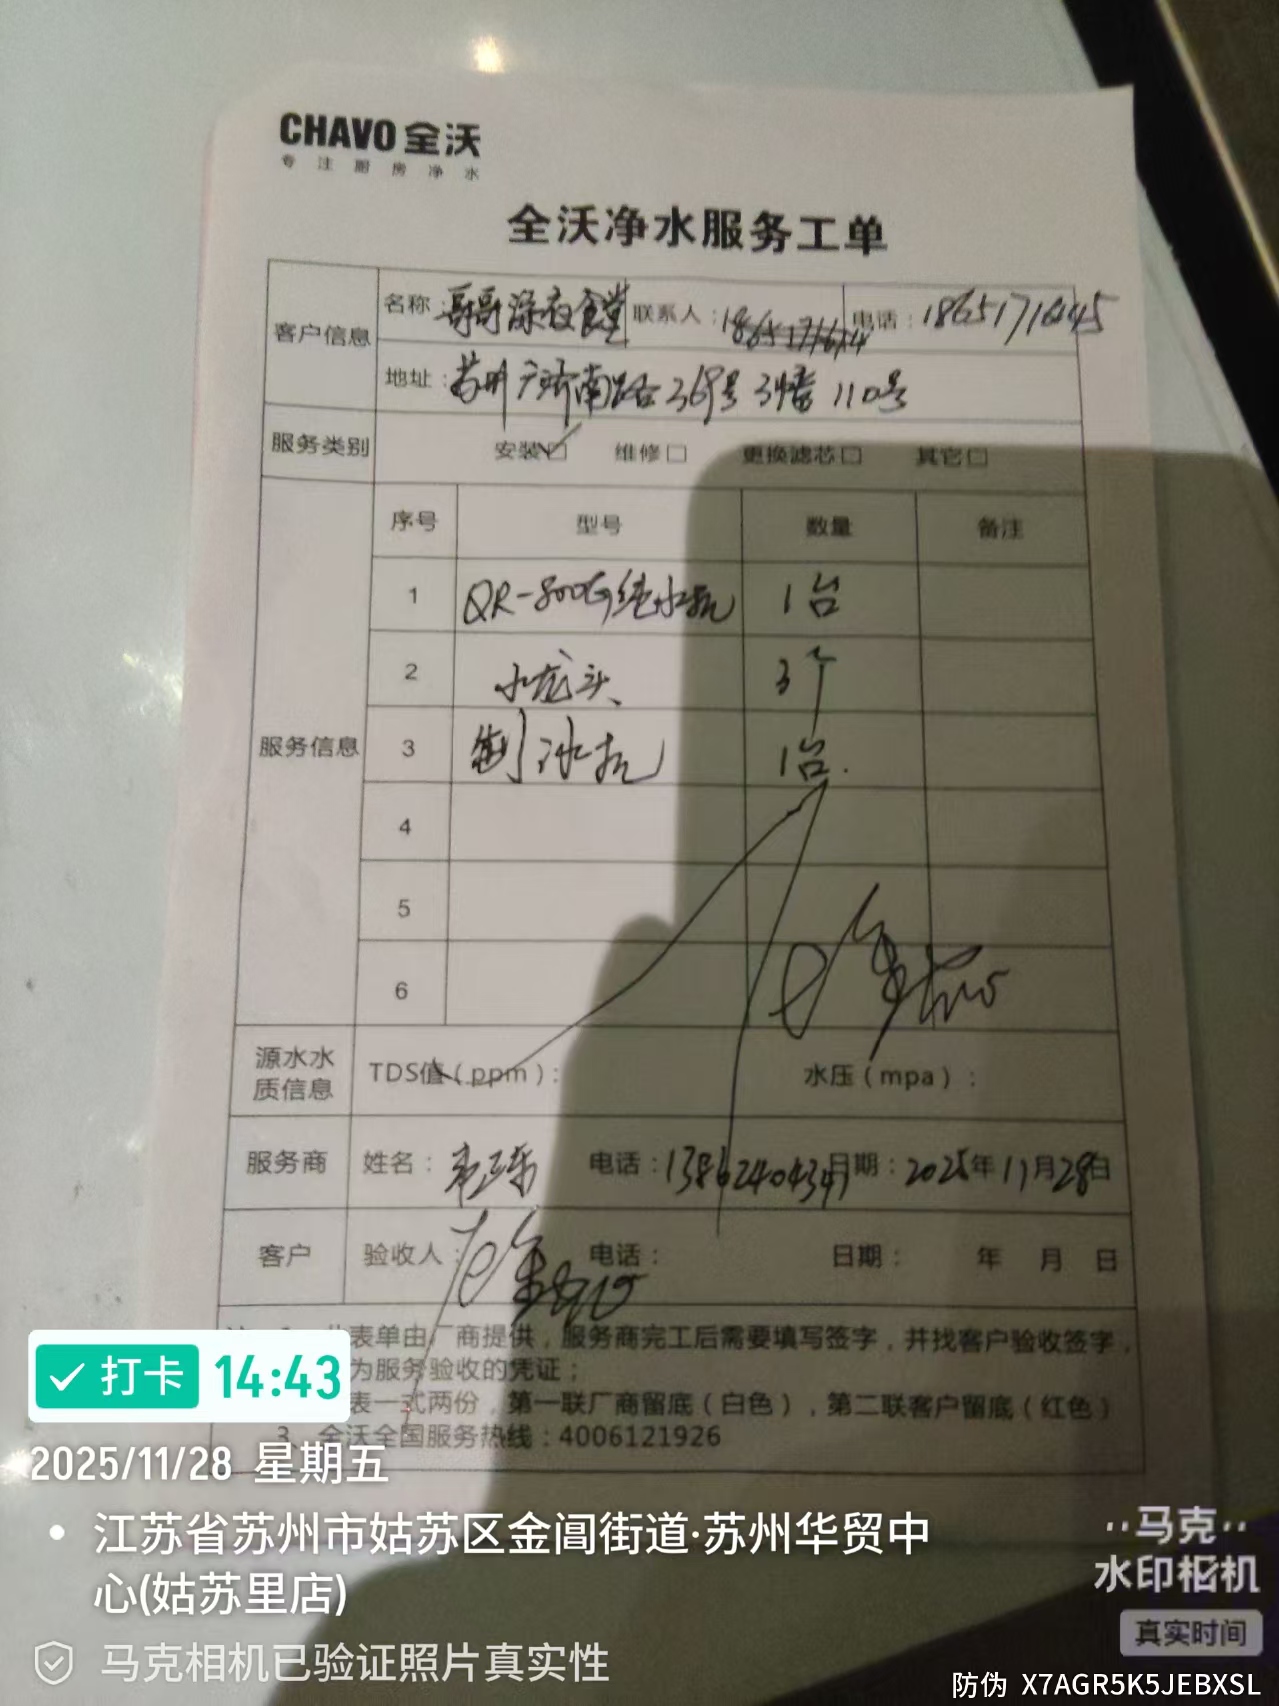 CHAVO 全沃
专注厨房净水
全沃净水服务工单
客户信息
名称：哥哥深夜食堂 联系人： 电话：18651716445
地址：苏州广济南路369号3幢110号
服务类别 安装☑ 维修□ 更换滤芯□ 其它□
服务信息
序号 型号 数量 备注
1 QR-800G纯水机 1台
2 水龙头 3个
3 制冰机 1台.
4
5
6
源水水质信息 TDS值（ppm）： 水压（mpa）：
服务商 姓名： 电话：13862404347 日期：2025年11月28日
客户 验收人： 电话： 日期： 年 月 日
表单由厂商提供，服务商完工后需要填写签字，并找客户验收签字，
为服务验收的凭证；
表一式两份，第一联厂商留底（白色），第二联客户留底（红色）
3 全沃全国服务热线：4006121926
打卡 14:43
2025/11/28 星期五
江苏省苏州市姑苏区金阊街道·苏州华贸中
心(姑苏里店)
马克相机已验证照片真实性
马克
水印相机
真实时间
防伪 X7AGR5K5JEBXSL